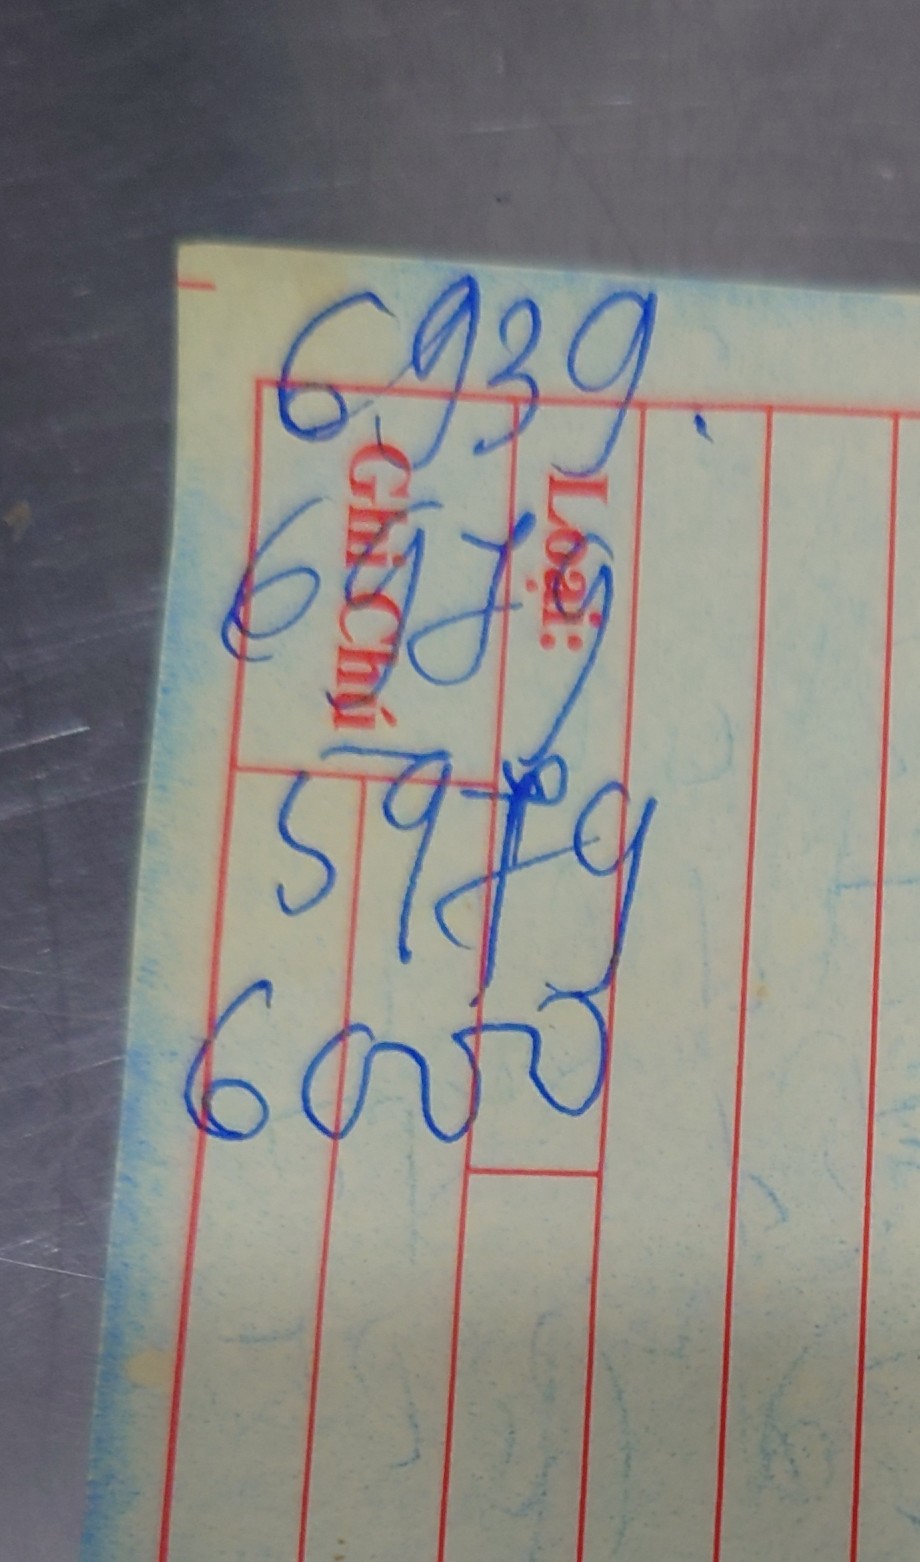 6939
Ghi Chú
Loại:
6979
5979
6022